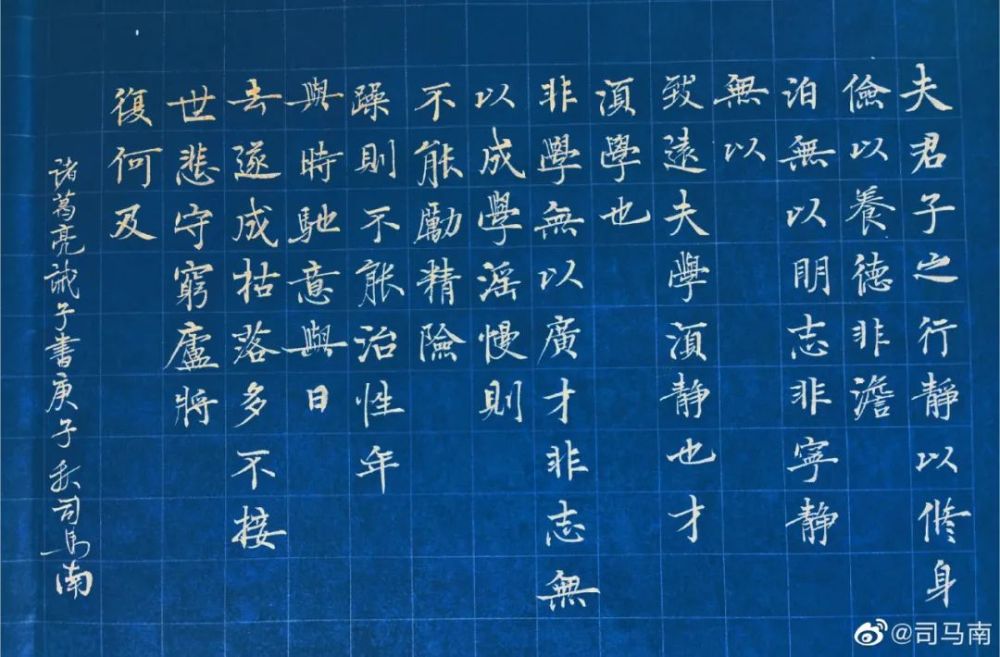 夫君子之行靜以修身
儉以養德非澹
泊無以明志非寧靜
無以
致遠夫學湏靜也才
湏學也
非學無以廣才非志無
以成學滛慢則
不能勵精險
躁則不能治性年
與時馳意與日
去遂成枯落多不接
世悲守窮廬將
復何及
诸葛亮诫子書庚子秋司马南
@司马南